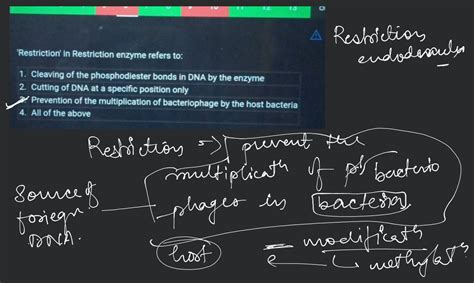 11 12 13
'Restriction' in Restriction enzyme refers to:
1. Cleaving of the phosphodiester bonds in DNA by the enzyme
2. Cutting of DNA at a specific position only
3. Prevention of the multiplication of bacteriophage by the host bacteria
4. All of the above
Restriction
Restriction => prevent the
of bacterio
Source of
foriegn
DNA.
phages in bacteria
host